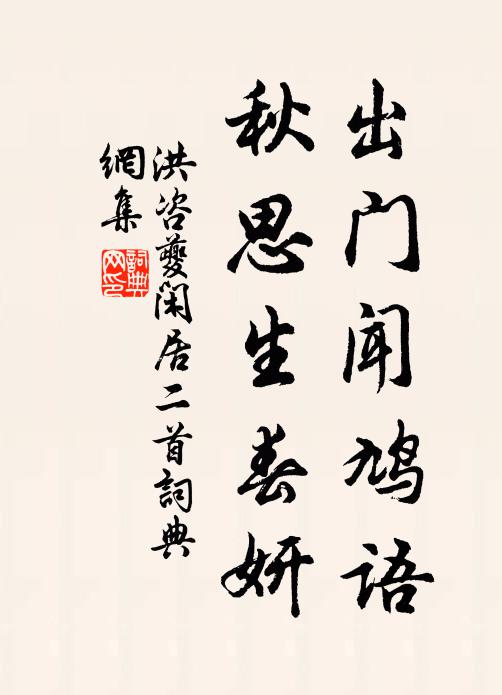 出门闻鸠语
秋思生春妍
洪咨夔闲居二首詞典
網集
詞典网印